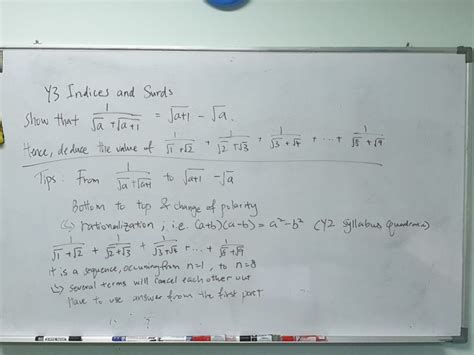 Y3 Indices and Surds
Show that 1/(√a + √a+1) = √a+1 - √a.
Hence, deduce the value of 1/(√1+√2) + 1/(√2+√3) + 1/(√3+√4) + ... + 1/(√8+√9)
Tips: From 1/(√a+√a+1) to √a+1 - √a
Bottom to top & change of polarity
↳ rationalization ; i.e. (a+b)(a-b) = a²-b² (Y2 syllabus
1/(√1+√2) + 1/(√2+√3) + 1/(√3+√4) + ... + 1/(√8+√9)
it is a sequence, occurring from n=1, to n=8
↳ several terms will cancel each other out
Have to use answer from the first part